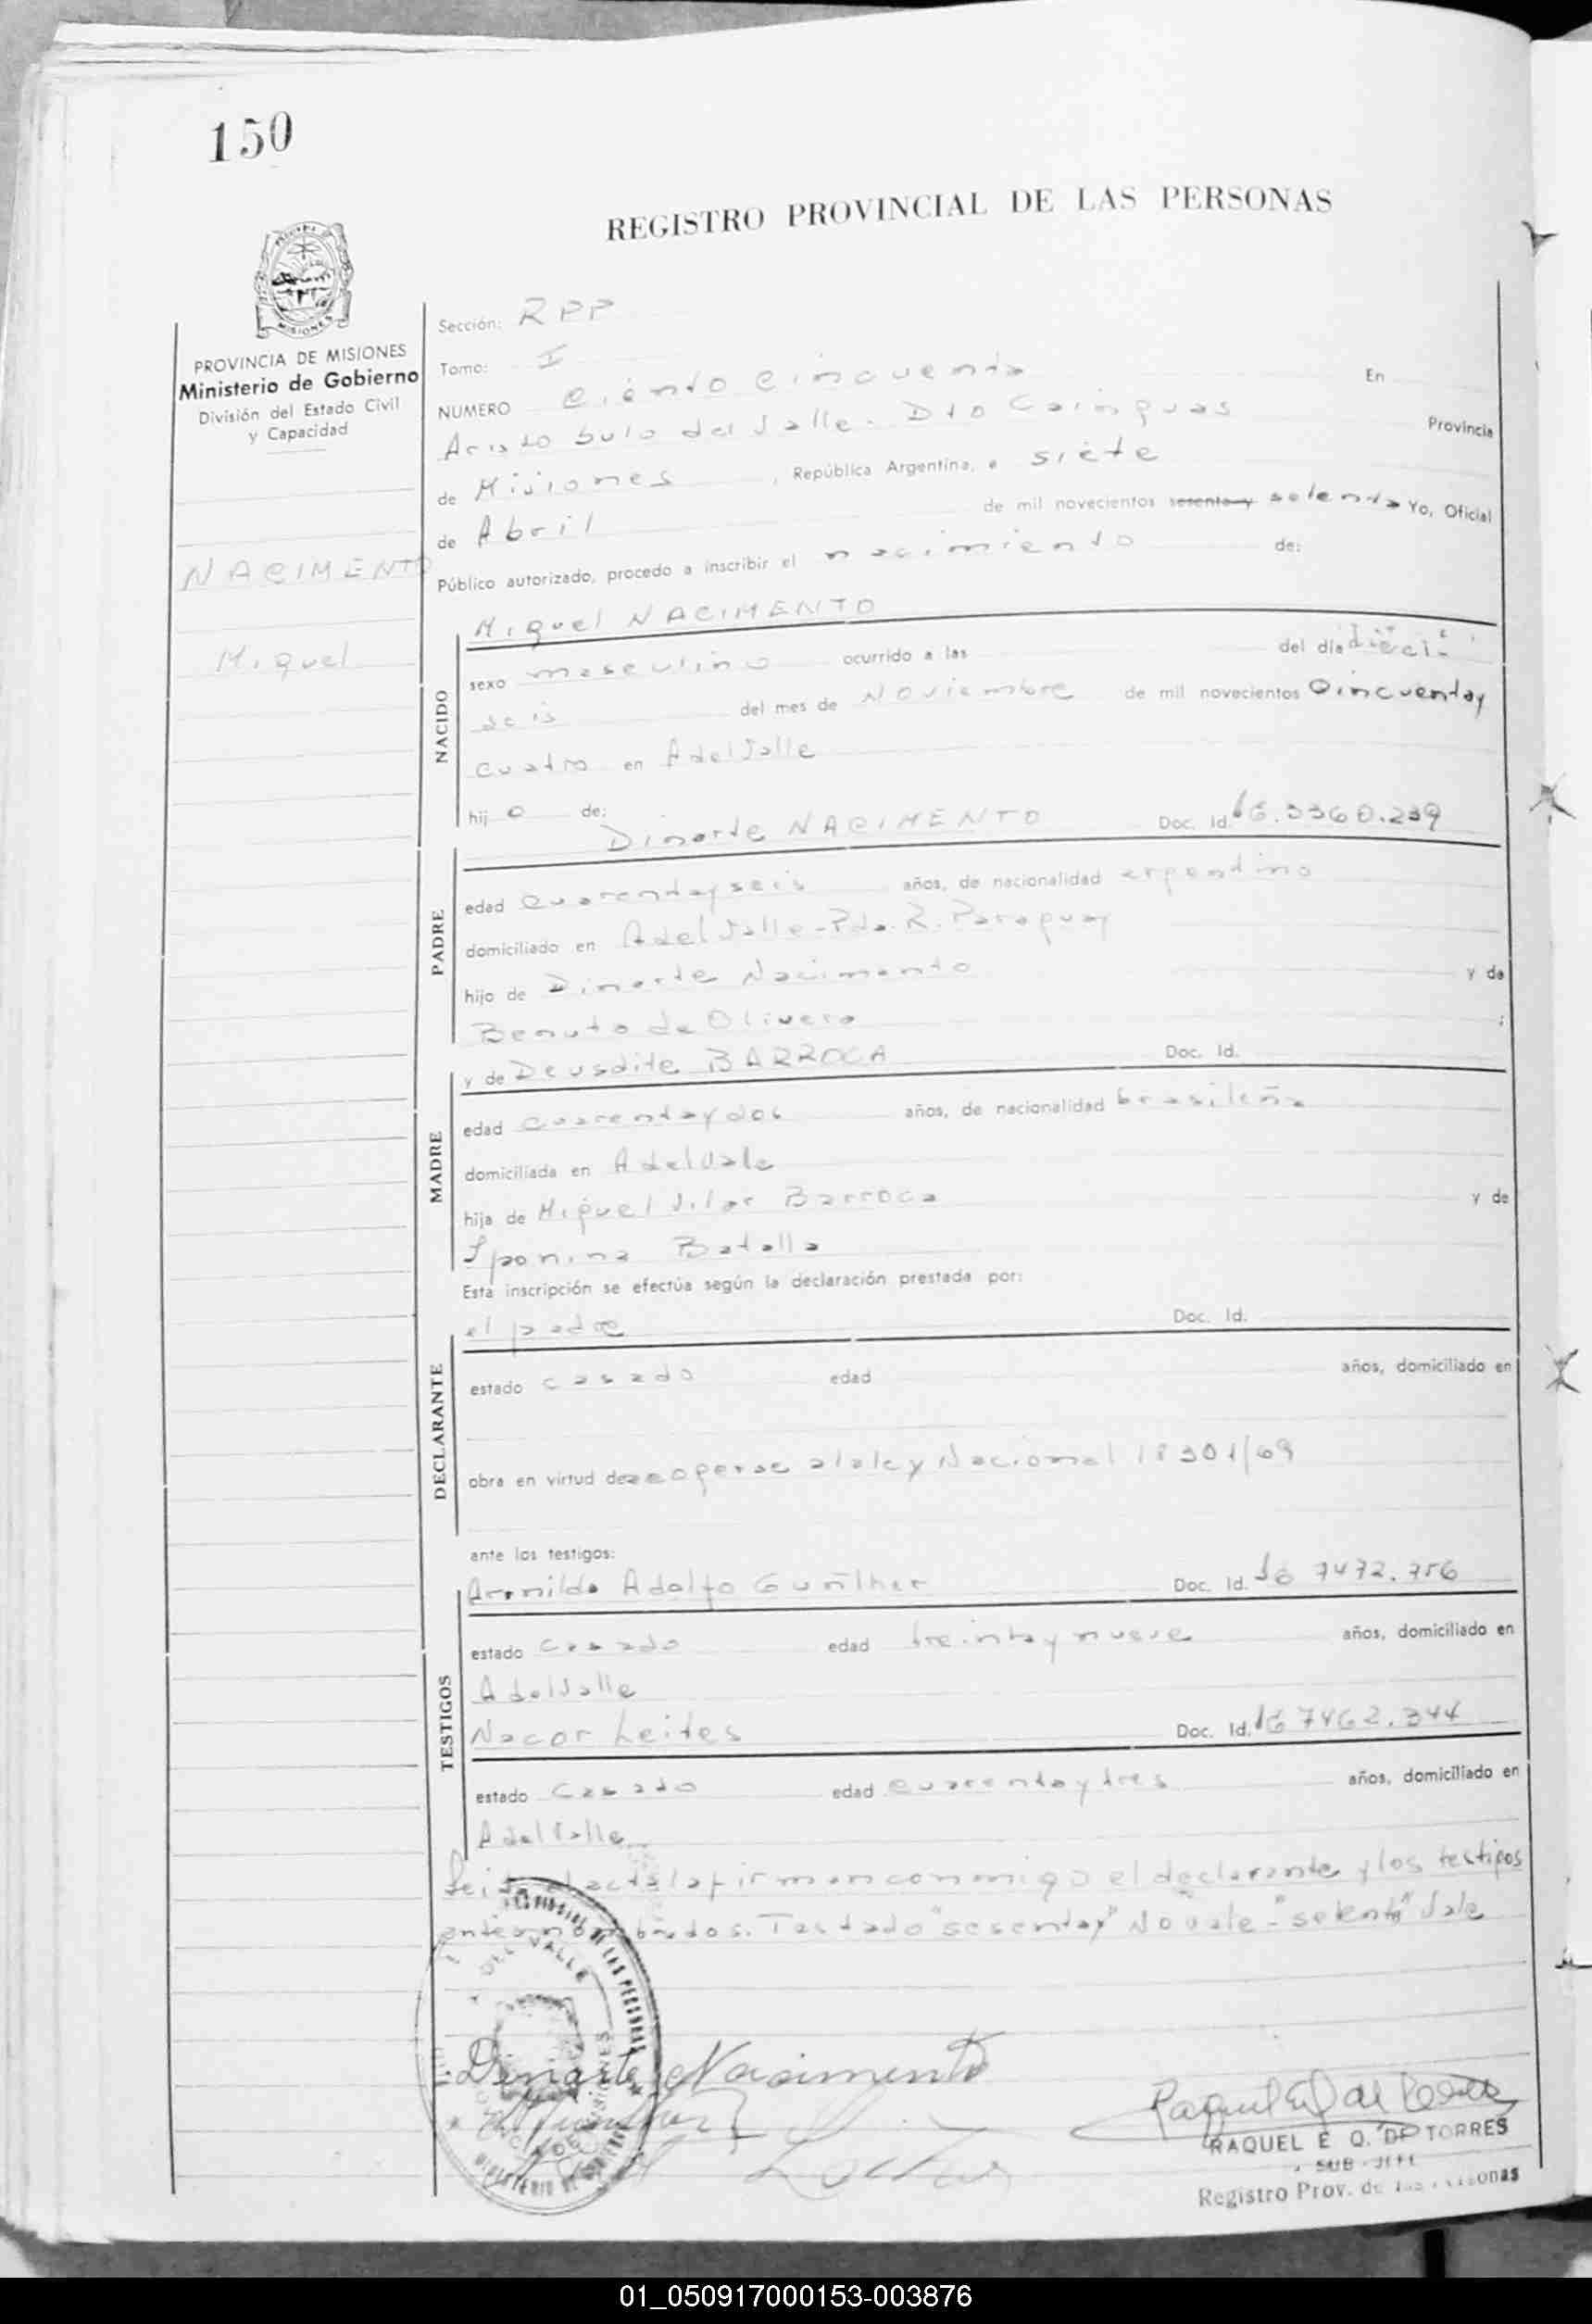 150
REGISTRO PROVINCIAL DE LAS PERSONAS
MISIONES
PROVINCIA DE MISIONES
Ministerio de Gobierno
División del Estado Civil
y Capacidad
NACIMENTO
Miguel
Sección: RPP
Tomo: I
NUMERO Ciento Cincuenta En
Aristobulo del Valle - Dto Cainguas Provincia
de Misiones, República Argentina, a siete
de Abril de mil novecientos sesenta y setenta Yo, Oficial
Público autorizado, procedo a inscribir el nacimiento de:
Miguel NACIMENTO
NACIDO
sexo masculino ocurrido a las del día dieci-
seis del mes de Noviembre de mil novecientos Cincuentay
cuatro en AdelValle
hijo de:
Dinarte NACIMENTO Doc. Id.
PADRE
edad cuarentayseis años, de nacionalidad argentino
domiciliado en AdelValle-Pdo. R. Paraguay
hijo de Dinarte Nacimento y de
de Olivera ;
y de Deusdite BARROCA Doc. Id.
MADRE
edad cuarentaydos años, de nacionalidad brasileña
domiciliada en AdelValle
hija de Miguel Vilar Barroca y de
Batalla
Esta inscripción se efectúa según la declaración prestada por:
el padre Doc. Id.
DECLARANTE
estado casado edad años, domiciliado en
obra en virtud de acogerse alaley Nacional 18301/69
ante los testigos:
Adolfo Gunther Doc. Id. 7472.756
TESTIGOS
estado casado edad treintaynueve años, domiciliado en
AdelValle
Nacor Leites Doc. Id. 7462.344
estado casado edad cuarentaytres años, domiciliado en
AdelValle
Leida acta la firman conmigo el declarante y los testigos
Testado "sesentay" No vale - "setenta" Vale
Dinarte Nacimento
RAQUEL E Q. DE TORRES
SUB-JEFE
Registro Prov. de las Personas
01_050917000153-003876